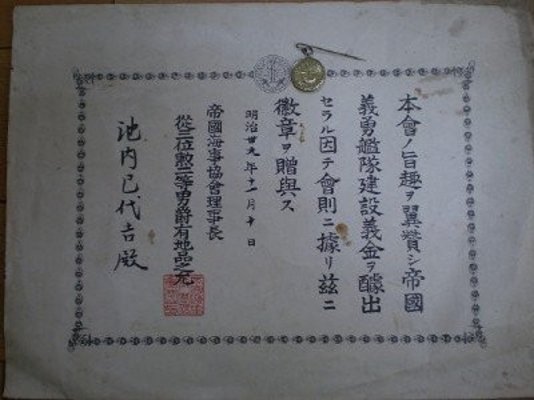 本會ノ旨趣ヲ翼賛シ帝國
義勇艦隊建設義金ヲ醵出
セラル因テ會則ニ據リ茲ニ
徽章ヲ贈與ス
明治廿九年十二月十日
帝國海事協會理事長
從三位勲二等男爵有地品之允
池内已代吉殿